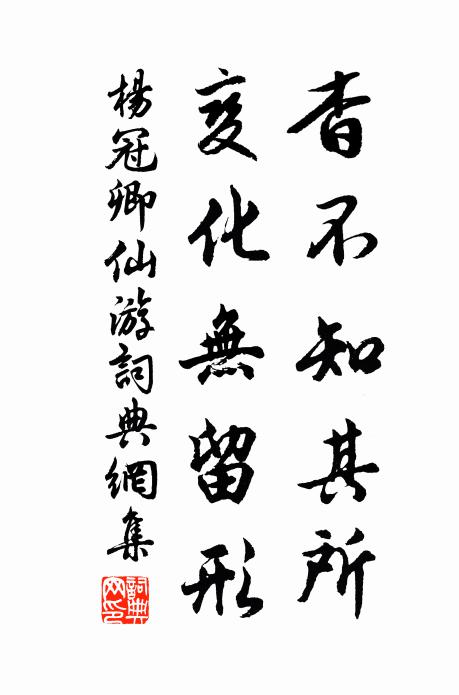 杳不知其所
変化無留形
楊冠卿仙游詞典網集
詞典
网印